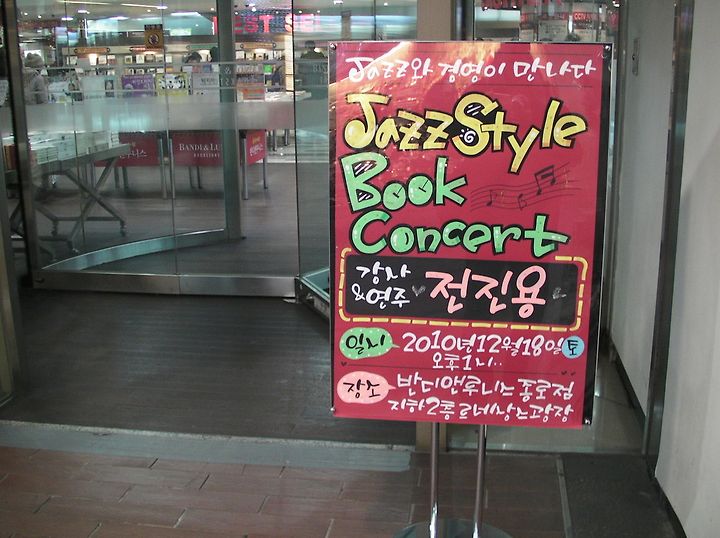 Jazz와 경영이 만나다
Jazz Style
Book
Concert
강사
&연주
전진용
일시
2010년12월18일 토
오후1시..
장소
반디앤루니스종로점
지하2층르네상스광장
BANDI&LU